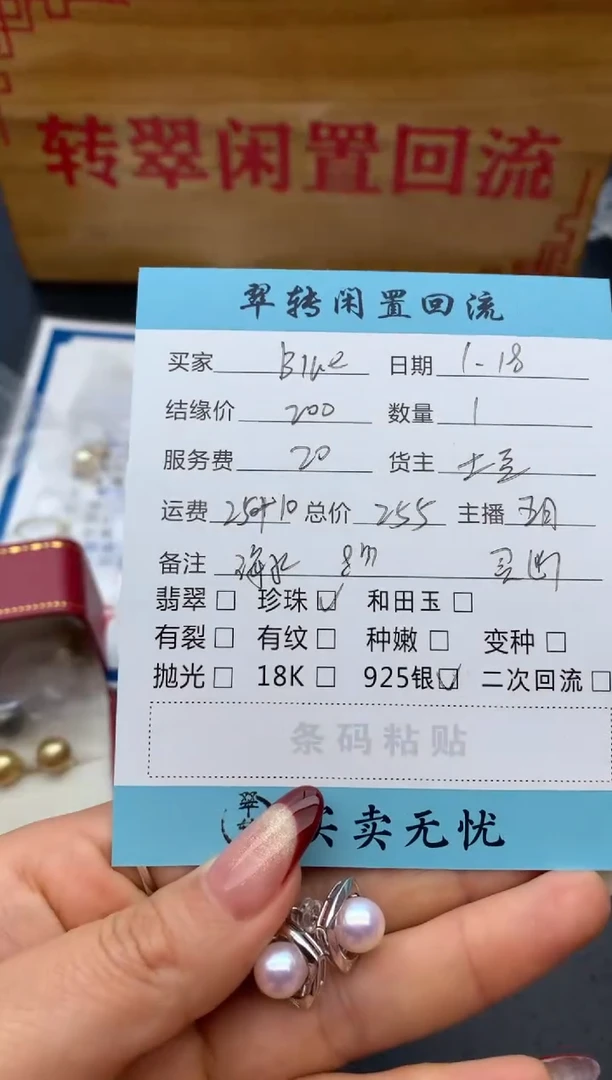 转翠闲置回流
翠转闲置回流
买家 Blue 日期 1-18
结缘价 200 数量 1
服务费 20 货主 土豆
运费 25+10 总价 255 主播 五月
备注 海水 8m
翡翠□ 珍珠☑ 和田玉□
有裂□ 有纹□ 种嫩□ 变种□
抛光□ 18K□ 925银☑ 二次回流□
条码粘贴
买卖无忧